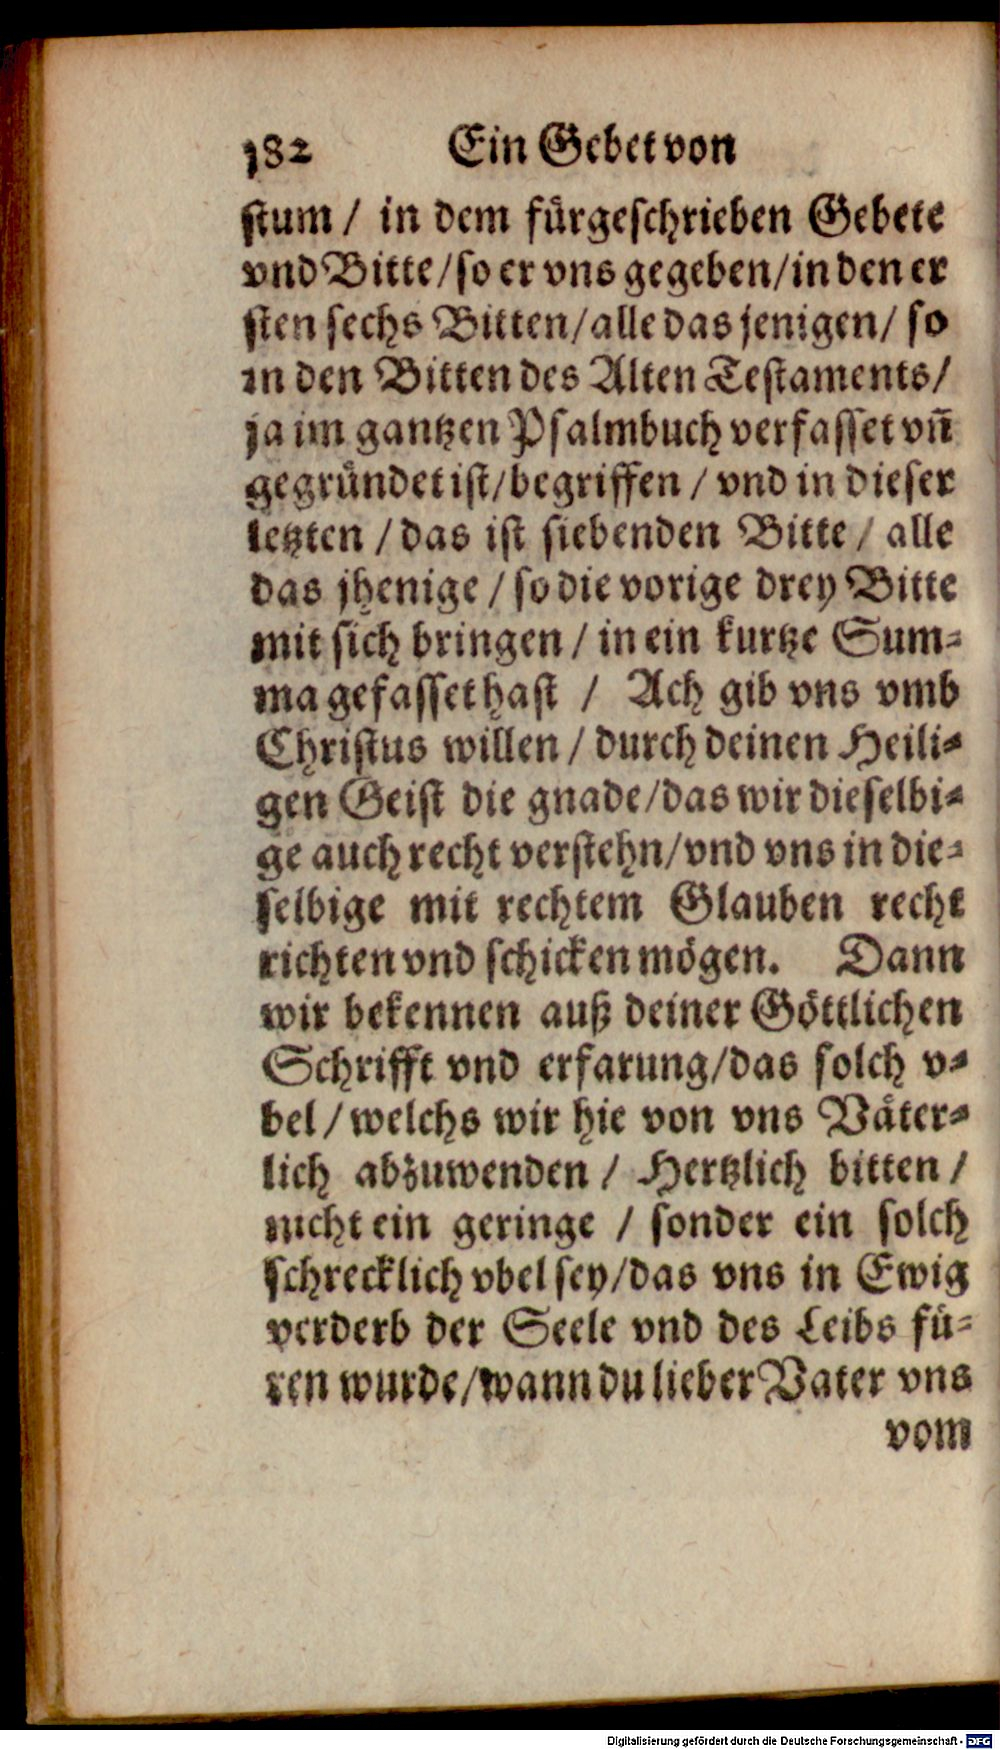 182 Ein Gebet von
stum / in dem fürgeschrieben Gebete
vnd Bitte / so er vns gegeben / in den er
sten sechs Bitten / alle das jenigen / so
in den Bitten des Alten Testaments /
ja im gantzen Psalmbuch verfasset vn̄
gegründet ist / begriffen / vnd in dieser
letzten / das ist siebenden Bitte / alle
das jhenige / so die vorige drey Bitte
mit sich bringen / in ein kurtze Sum-
ma gefasset hast / Ach gib vns vmb
Christus willen / durch deinen Heili-
gen Geist die gnade / das wir dieselbi-
ge auch recht verstehn / vnd vns in die-
selbige mit rechtem Glauben recht
richten vnd schicken mögen. Dann
wir bekennen auß deiner Göttlichen
Schrifft vnd erfarung / das solch v-
bel / welchs wir hie von vns Väter-
lich abzuwenden / Hertzlich bitten /
nicht ein geringe / sonder ein solch
schrecklich vbel sey / das vns in Ewig
verderb der Seele vnd des Leibs fü-
ren wurde / wann du lieber Vater vns
vom
Digitalisierung gefördert durch die Deutsche Forschungsgemeinschaft - DFG